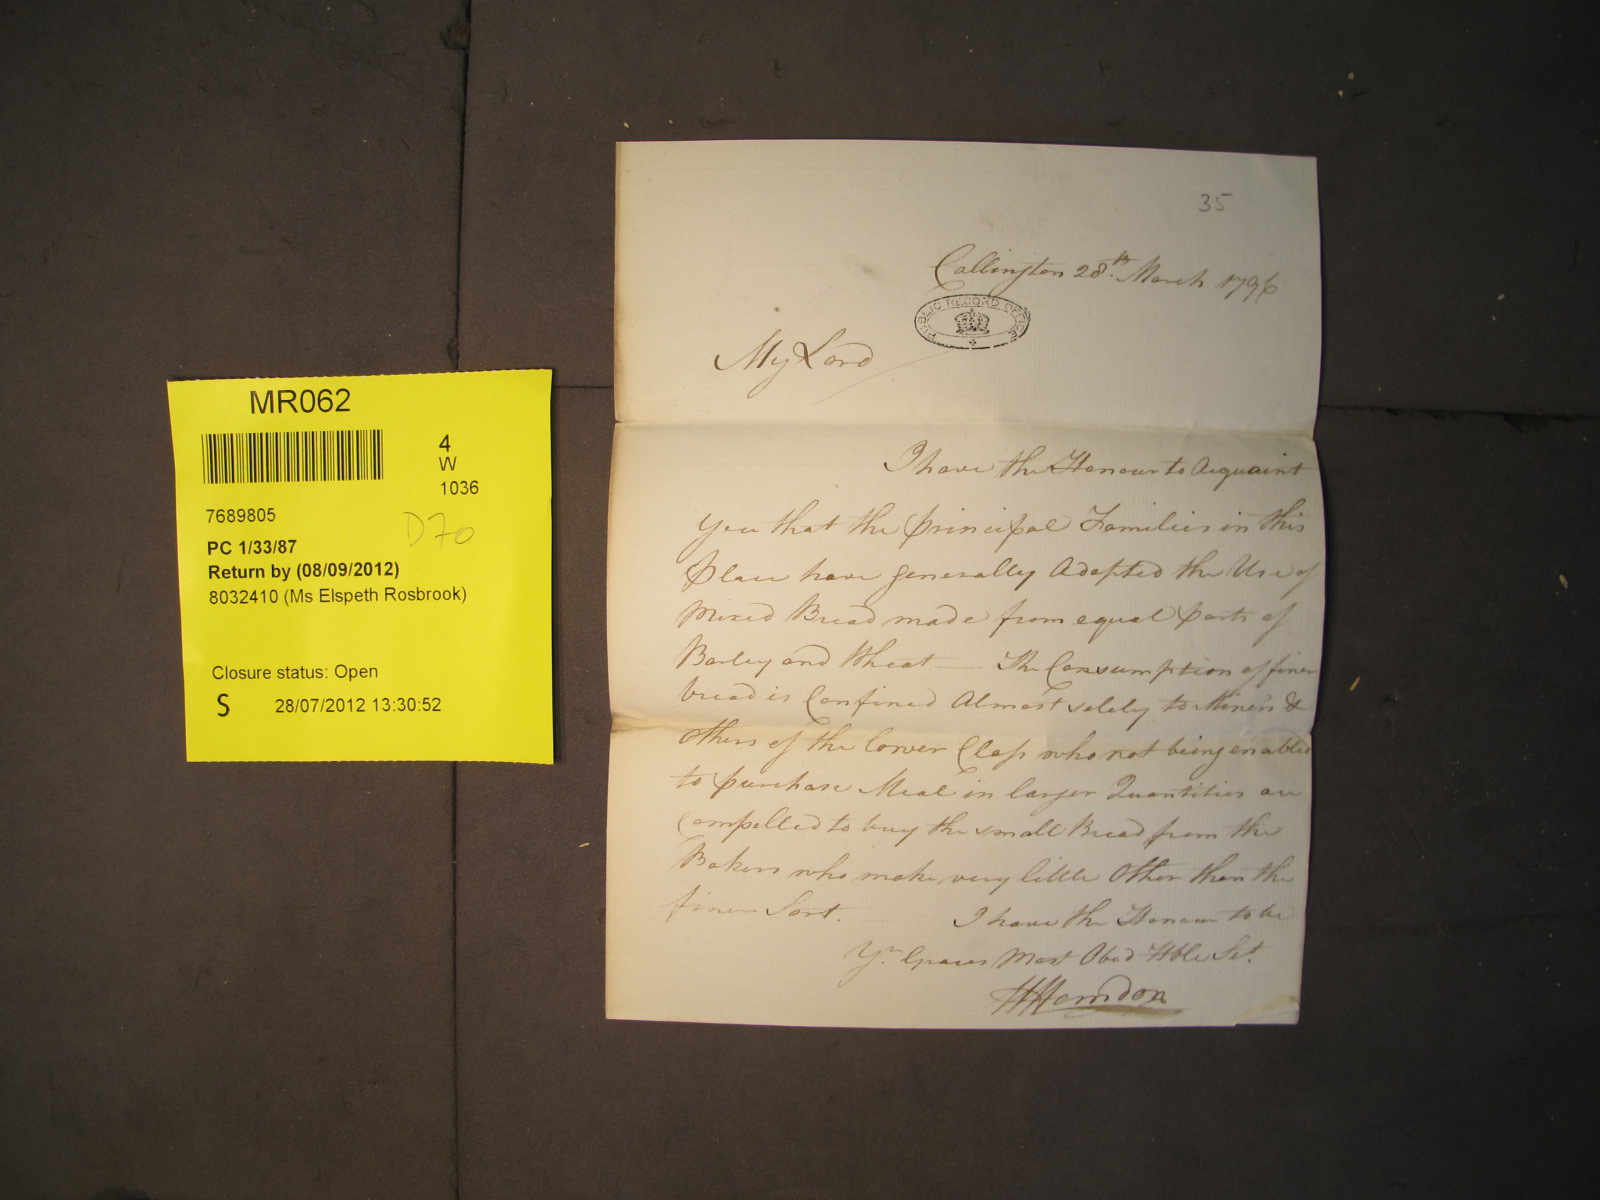 MR062
4
W
1036
7689805
D70
PC 1/33/87
Return by (08/09/2012)
8032410 (Ms Elspeth Rosbrook)
Closure status: Open
S 28/07/2012 13:30:52
35
Callington 28th March 1796
PUBLIC RECORD OFFICE
My Lord
I have the Honour to Acquaint
you that the principal Families in this
place have generally Adopted the Use of
mixed Bread made from equal parts of
Barley and Wheat — The Consumption of finer
bread is Confined Almost solely to Miners &
others of the lower Class who not being enabled
to purchase Meal in larger Quantities are
Compelled to buy the small Bread from the
Bakers who make very little Other than the
finer Sort. — I have the Honour to be
Yr. Graces Most Obed Hble St.